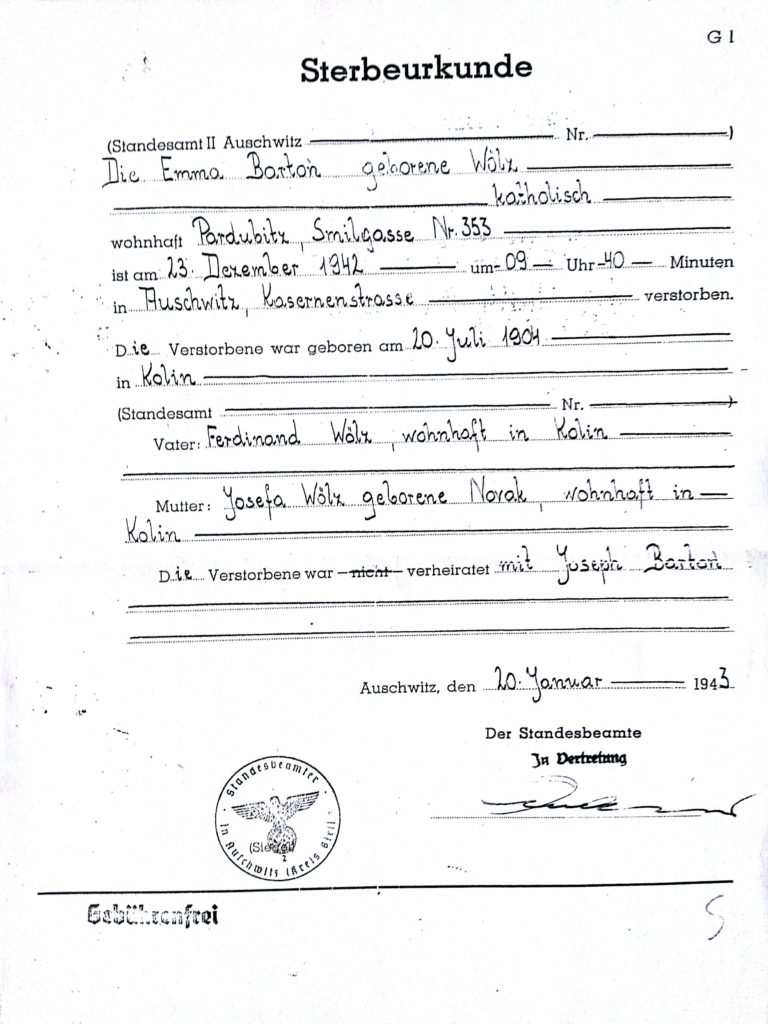 G I
Sterbeurkunde
(Standesamt II Auschwitz Nr. )
Die Emma Bartoň geborene Wölz
katholisch
wohnhaft Pardubitz, Smilgasse Nr. 353
ist am 23. Dezember 1942 um 09 Uhr 40 Minuten
in Auschwitz, Kasernenstrasse verstorben.
Die Verstorbene war geboren am 20. Juli 1904
in Kolin
(Standesamt Nr. )
Vater: Ferdinand Wölz, wohnhaft in Kolin
Mutter: Josefa Wölz geborene Novak, wohnhaft in
Kolin
Die Verstorbene war nicht verheiratet mit Joseph Barton
Auschwitz, den 20. Januar 1943
Der Standesbeamte
In Vertretung
Standesbeamter
in Auschwitz (Kreis Bielitz)
(Siegel)
2
Gebührenfrei